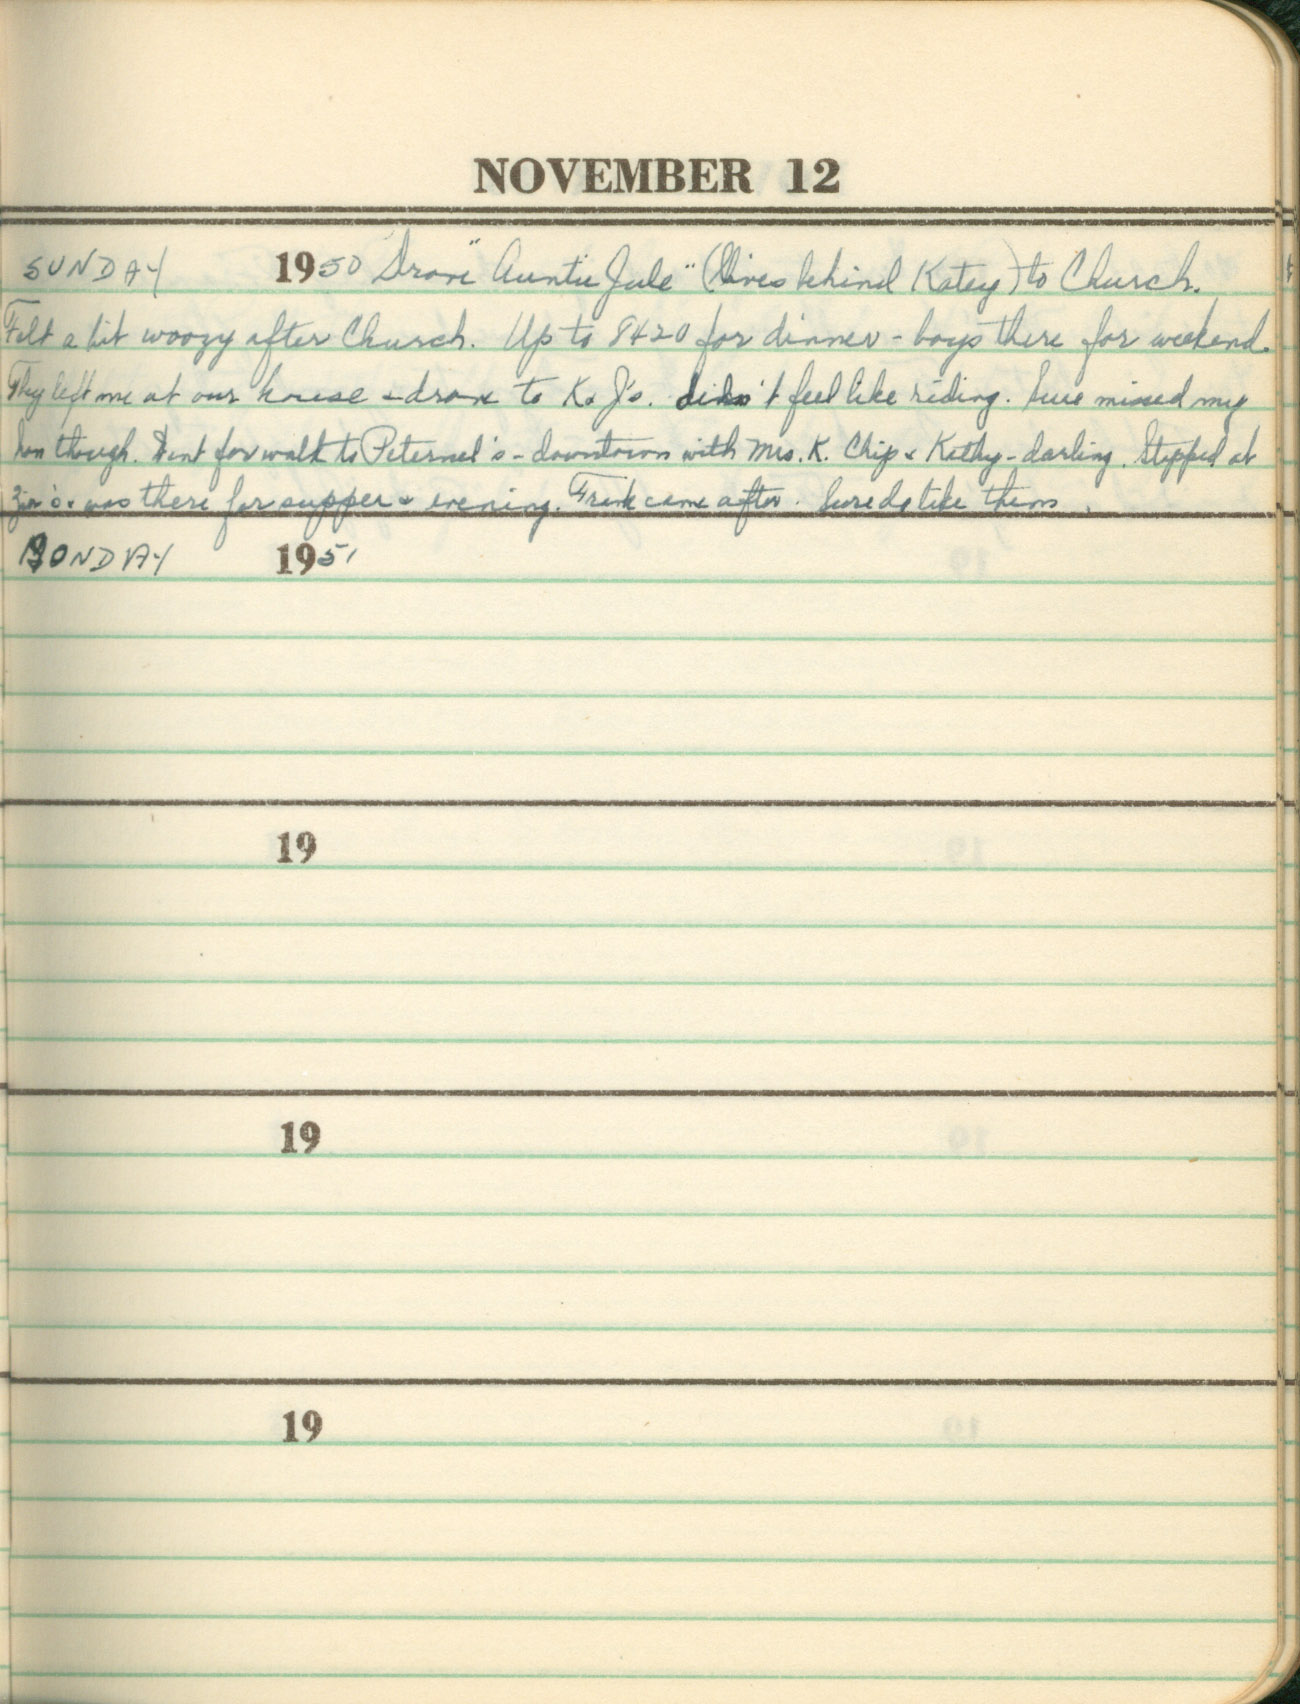 NOVEMBER 12
SUNDAY 1950 Drove "Auntie Jule" (lives behind Katey) to Church.
Felt a bit woozy after Church. Up to 8420 for dinner - boys there for weekend.
They left me at our house & drove to K. J's. didn't feel like riding. Sure missed my
hon though. Went for walk to Peternel's - downtown with Mrs. K. Chip & Kathy - darling. Stopped at
was there for supper & evening. Frank came after. Sure do like them.
MONDAY 1951
19
19
19